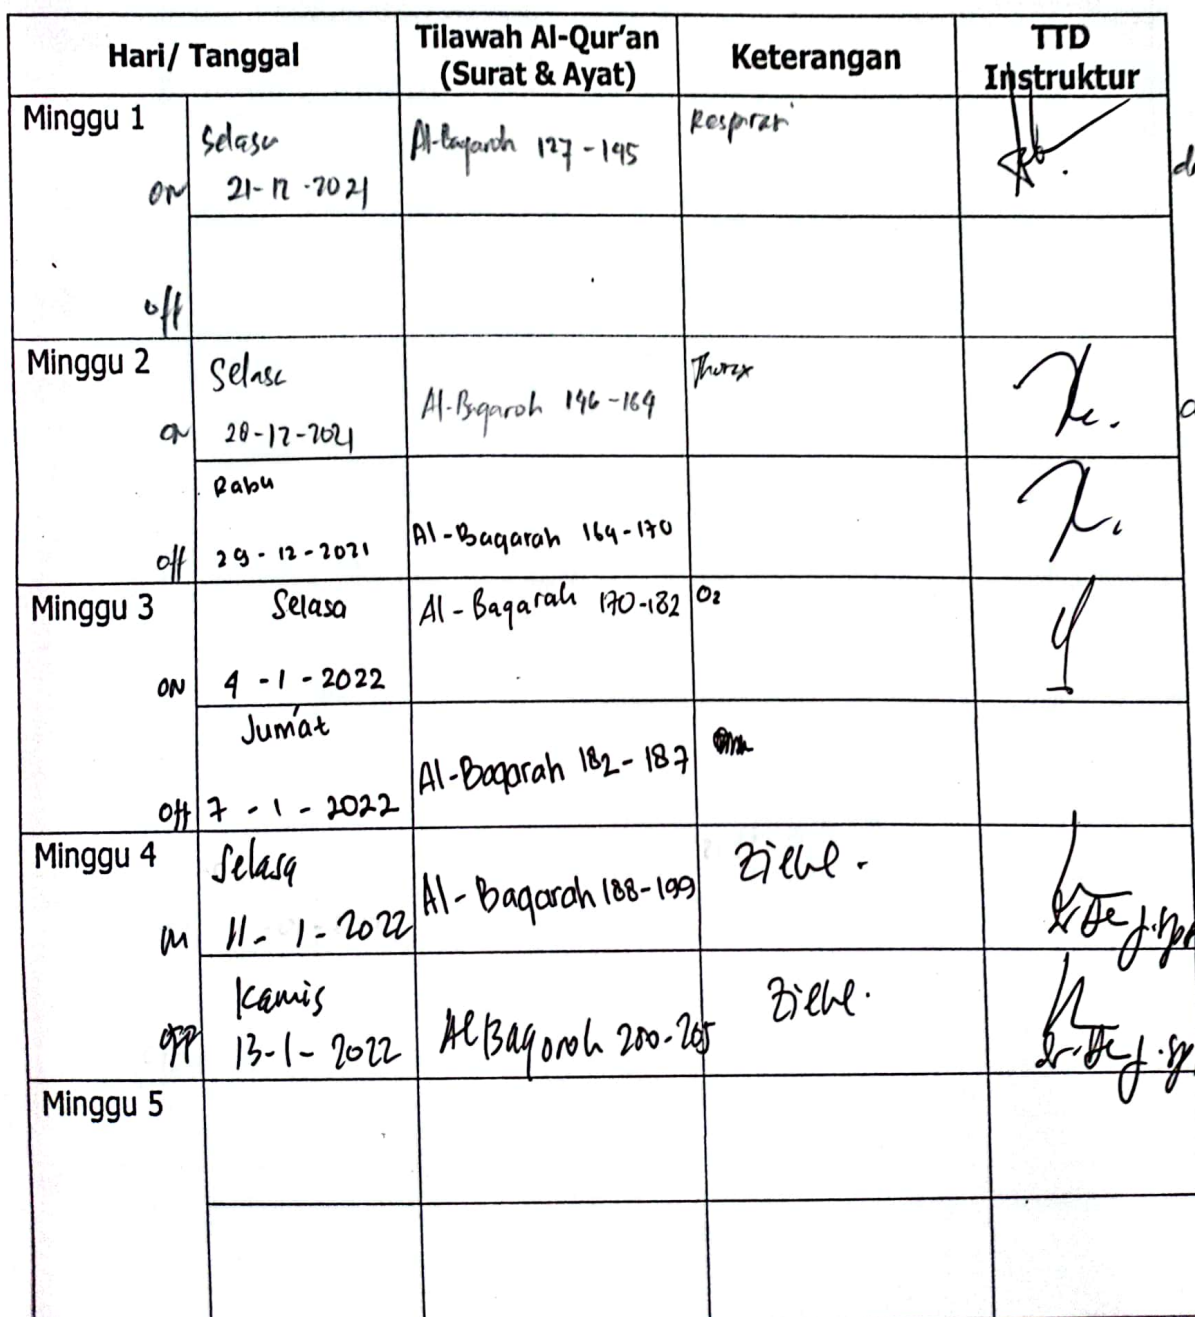 Hari/ Tanggal
Tilawah Al-Qur'an
(Surat & Ayat)
Keterangan
TTD
Instruktur
Minggu 1
ON
Selasa
21-12-2021
Al-Baqaroh 127-145
Respirasi
off
Minggu 2
ON
Selasa
28-12-2021
Al-Baqaroh 146-164
Thorax
off
Rabu
29-12-2021
Al-Baqarah 164-170
Minggu 3
ON
Selasa
4-1-2022
Al-Baqarah 170-182
O2
Off
Jum'at
7-1-2022
Al-Baqarah 182-187
Minggu 4
on
Selasa
11-1-2022
Al-Baqarah 188-199
Ziehl.
off
Kamis
13-1-2022
Al Baqoroh 200-205
Ziehl.
Minggu 5